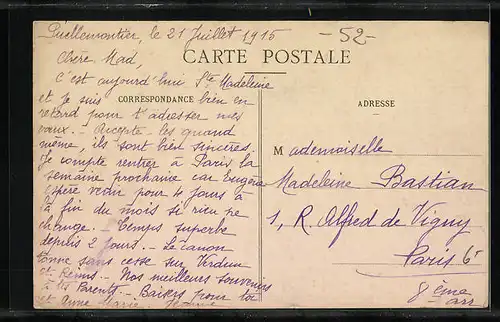 Puellemontier, le 21 Juillet 1915
- 52 -
CARTE POSTALE
Chère Mad,
C'est aujourd'hui Ste Madeleine
et je suis bien en
CORRESPONDANCE
retard pour t'adresser mes
vœux. - Accepte-les quand
même, ils sont bien sincères.
Je compte rentrer à Paris la
semaine prochaine car Eugène
espère venir pour 4 jours à
la fin du mois si rien ne
change. - Temps superbe
depuis 2 jours. - Le canon
tonne sans cesse sur Verdun
et Reims - Nos meilleurs souvenirs
à tes Parents. - Baisers pour toi
et Anne Marie
ADRESSE
Mademoiselle
Madeleine Bastian
1, R. Alfred de Vigny
Paris
8ème
arr